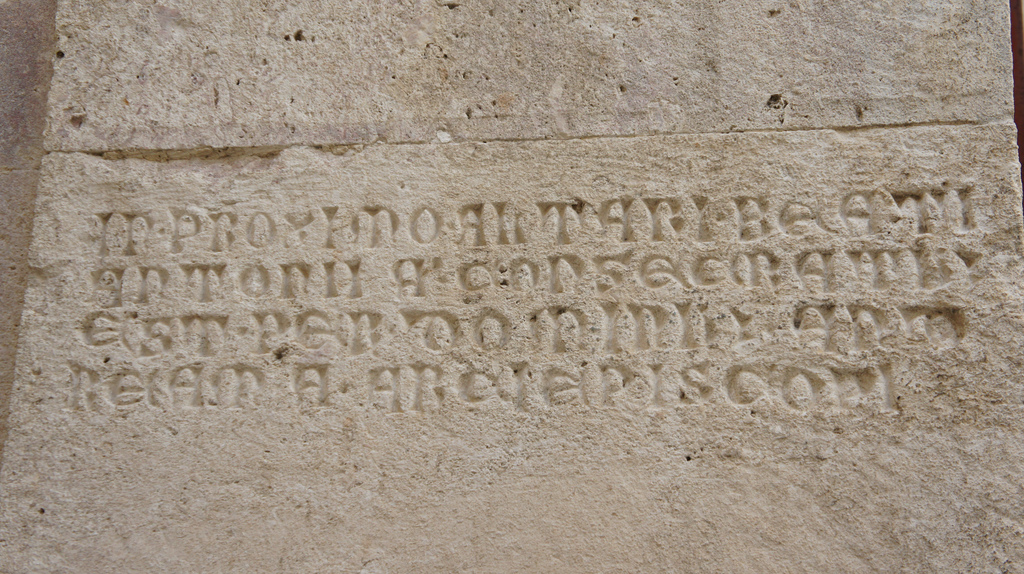 IN·PROXIMO·ALTARI·BEATI
ANTONII A'·CONSECRATU
EST·PER·DOMINU AND
REAM A·ARCIEPISCOPI